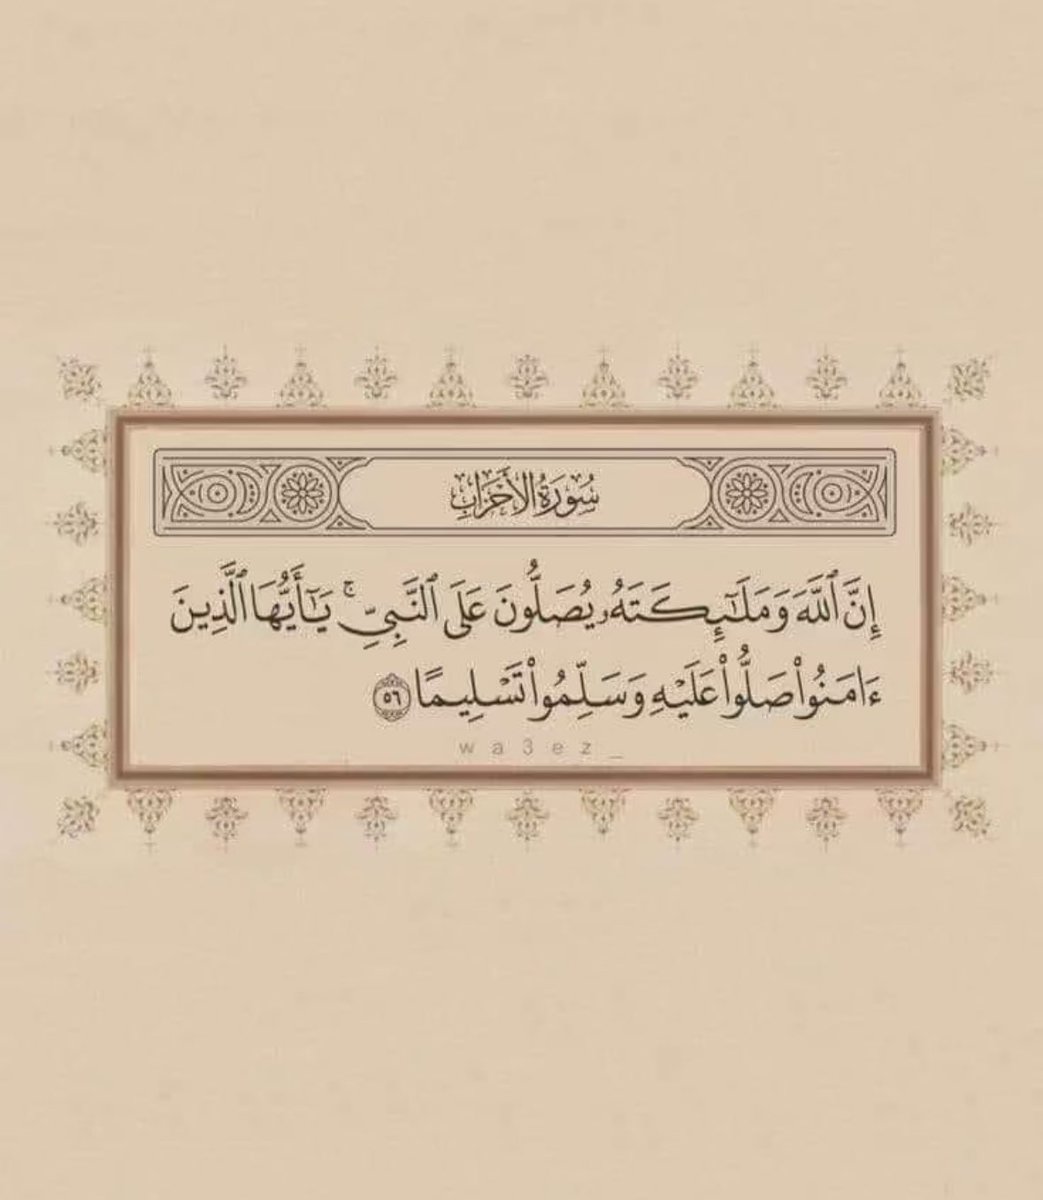 سُورَةُ الأَحْزَابِ
إِنَّ ٱللَّهَ وَمَلَـٰٓئِكَتَهُۥ يُصَلُّونَ عَلَى ٱلنَّبِىِّ ۚ يَـٰٓأَيُّهَا ٱلَّذِينَ
ءَامَنُوا۟ صَلُّوا۟ عَلَيْهِ وَسَلِّمُوا۟ تَسْلِيمًا ٥٦
wa3ez_